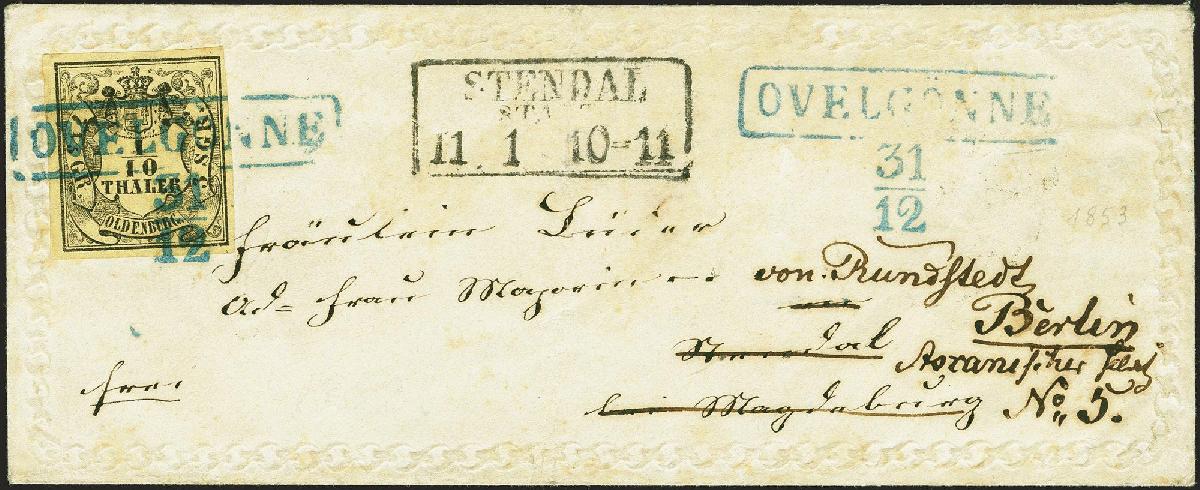 OVELGÖNNE
31
12
3 SGR.
1
10
THALER
OLDENBURG.
STENDAL
STA
11 1 10-11
OVELGÖNNE
31
12
1853
Fräulein
Frau Majorin von Rundstedt
Berlin
Stendal
bei Magdeburg No. 5.
frei